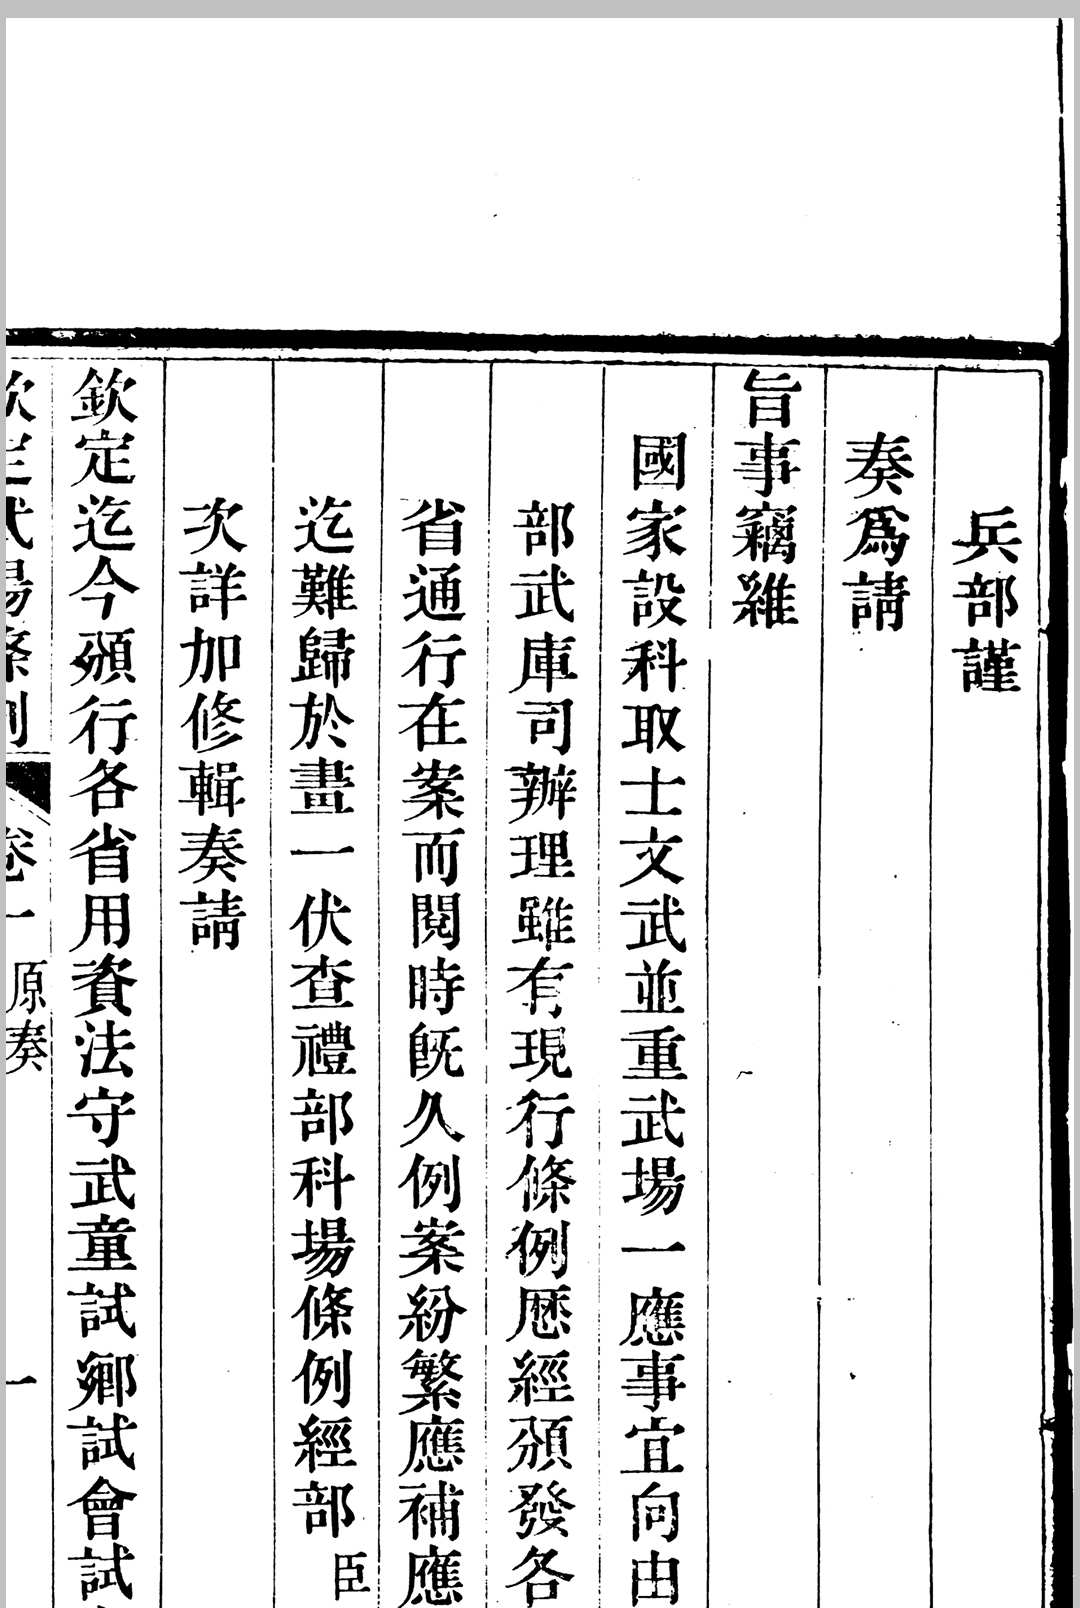 兵部謹
奏爲請
旨事竊維
國家設科取士文武並重武場一應事宜向由
部武庫司辦理雖有現行條例歷經頒發各
省通行在案而閱時旣久例案紛繁應補應
迄難歸於畫一伏查禮部科場條例經部臣
次詳加修輯奏請
欽定迄今頒行各省用資法守武童試鄉試會試
欽定武場條例 卷一 原奏 一